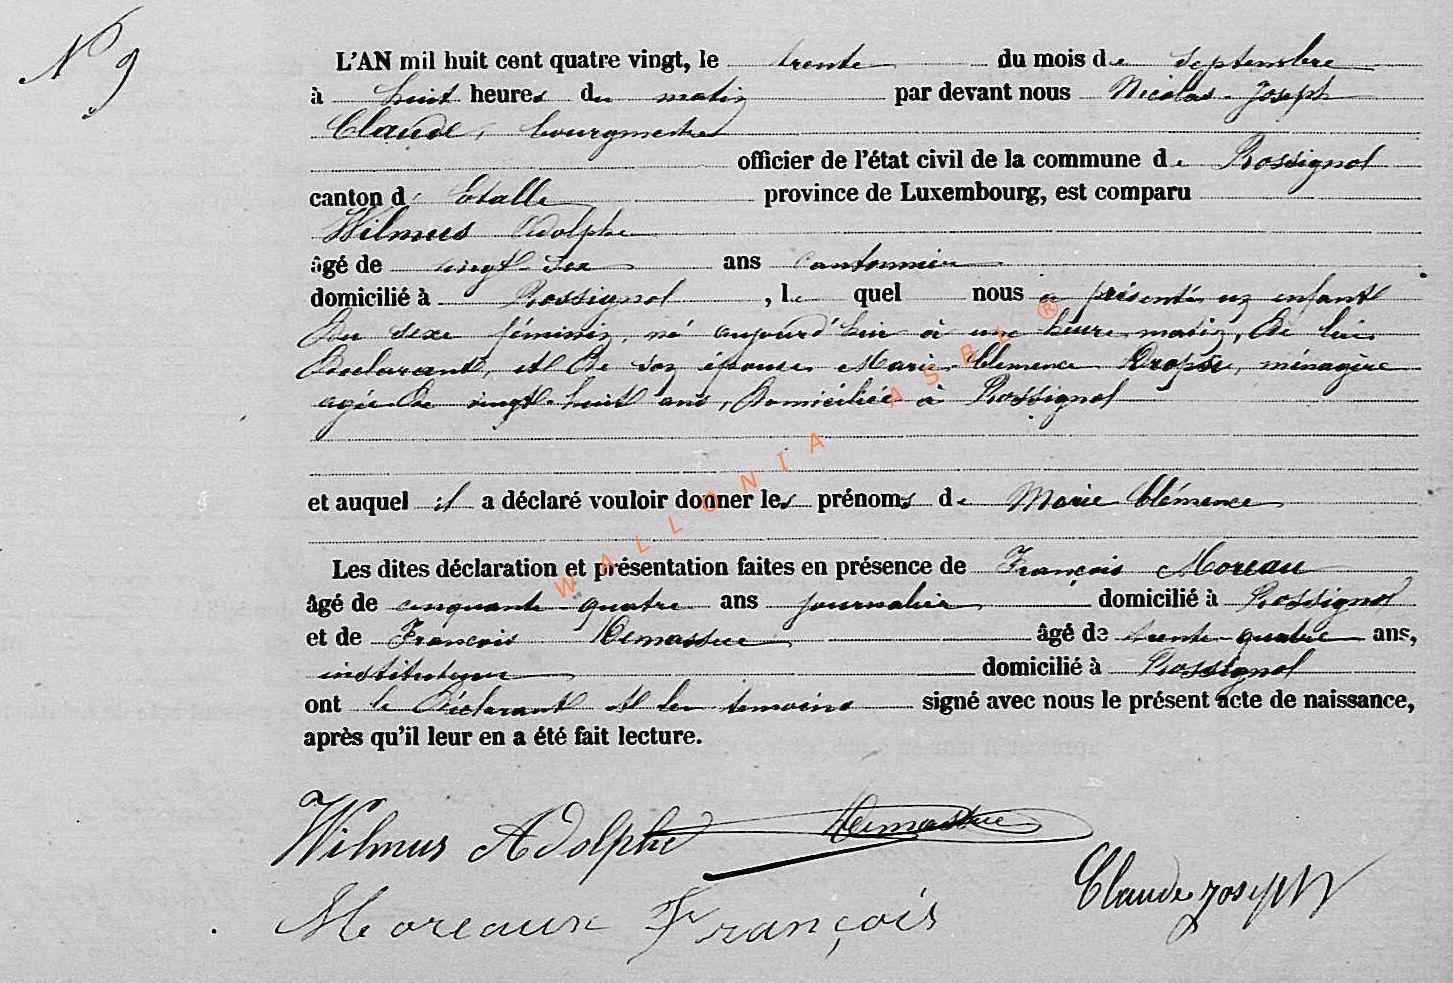 N° 9
L'AN mil huit cent quatre vingt, le trente du mois de septembre
à huit heures du matin par devant nous Nicolas-Joseph
Claude, bourgmestre
officier de l'état civil de la commune de Rossignol
canton d' Etalle province de Luxembourg, est comparu
Wilmus Adolphe
âgé de vingt-six ans cantonnier
domicilié à Rossignol, le quel nous a présenté un enfant
du sexe féminin, né aujourd'hui à une heure matin, de lui
déclarant, et de son épouse Marie Clémence Dropsy, ménagère
agée de vingt-huit ans, domiciliée à Rossignol
et auquel il a déclaré vouloir donner les prénoms de Marie Clémence
Les dites déclaration et présentation faites en présence de François Moreau
âgé de cinquante-quatre ans journalier domicilié à Rossignol
et de François âgé de trente-quatre ans,
instituteur domicilié à Rossignol
ont le déclarant et les temoins signé avec nous le présent acte de naissance,
après qu'il leur en a été fait lecture.
Wilmus Adolphe
Claude Joseph
Moreaux François
WALLONIA ASBL ®